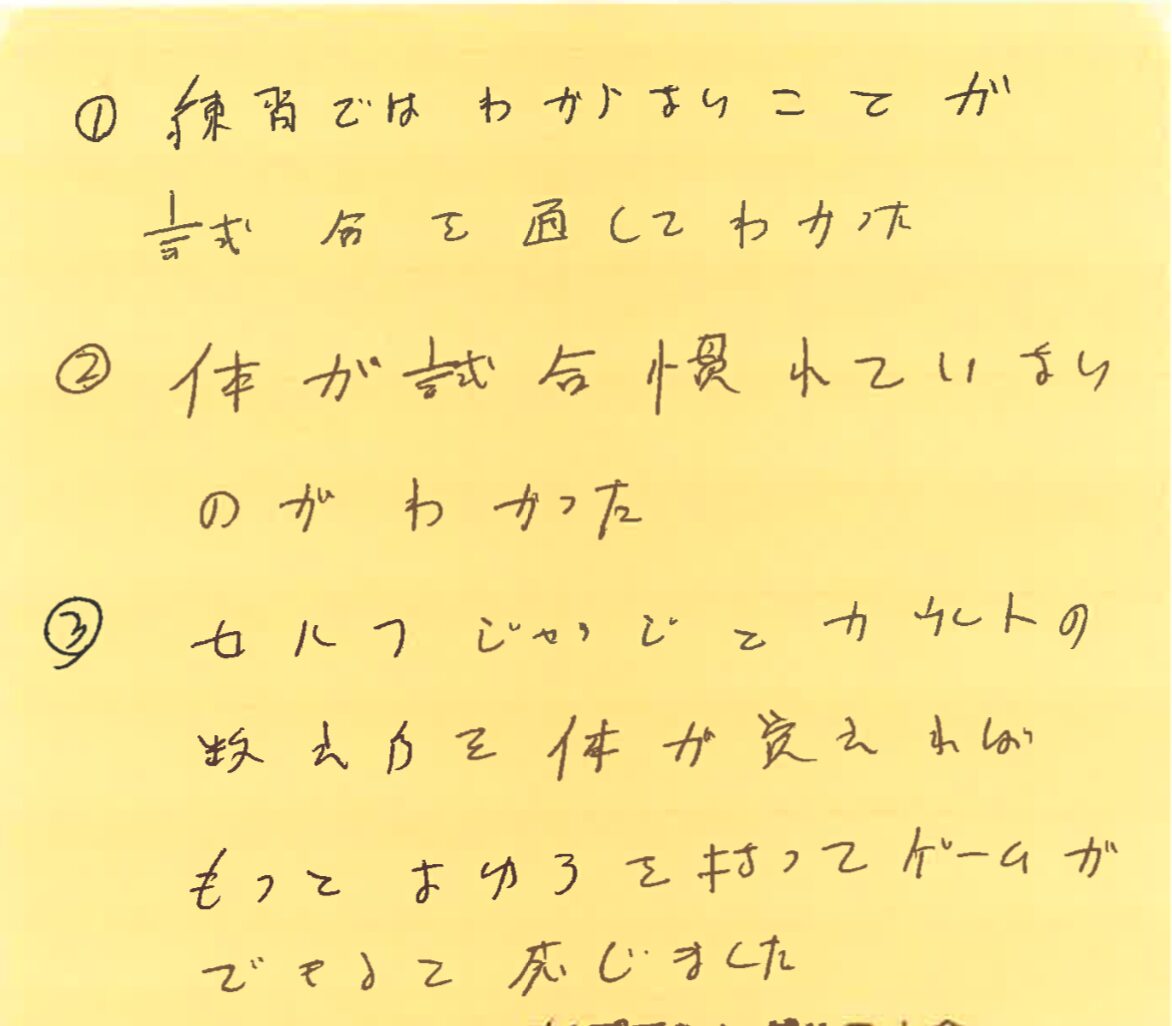 ① 練習ではわからないことが
試合を通してわかった
② 体が試合慣れていない
のがわかった
③ セルフジャッジとカウントの
数え方を体が覚えれば
もっとよゆうを持ってゲームが
できると感じました